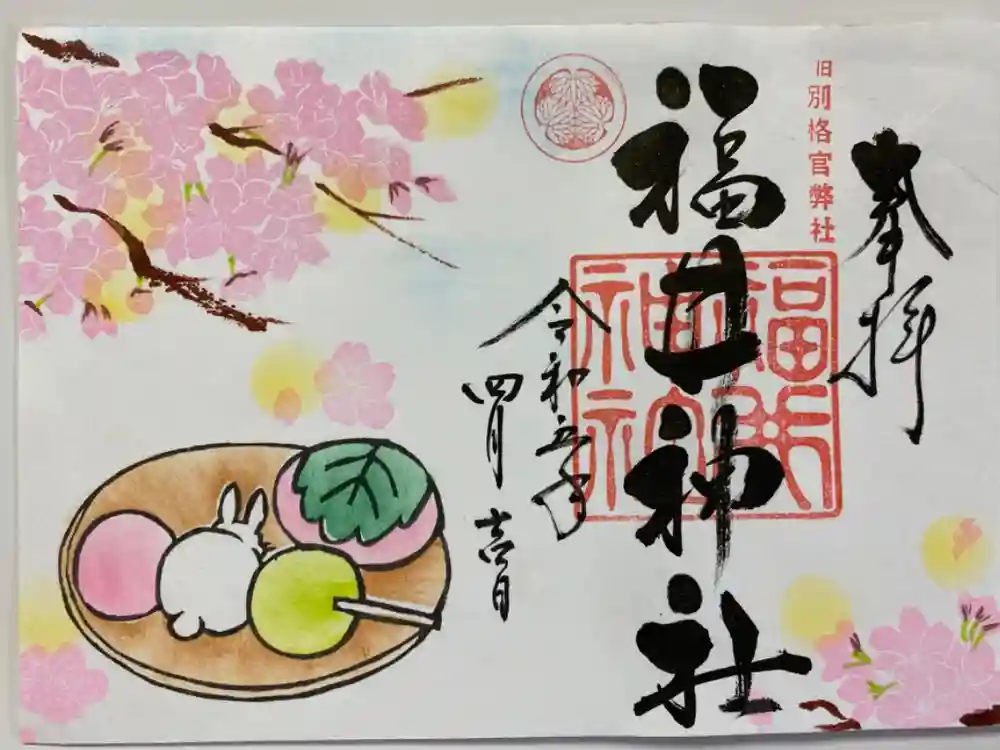 奉拝
旧別格官弊社
福井神社
福井神社宮印
令和五年
四月吉日